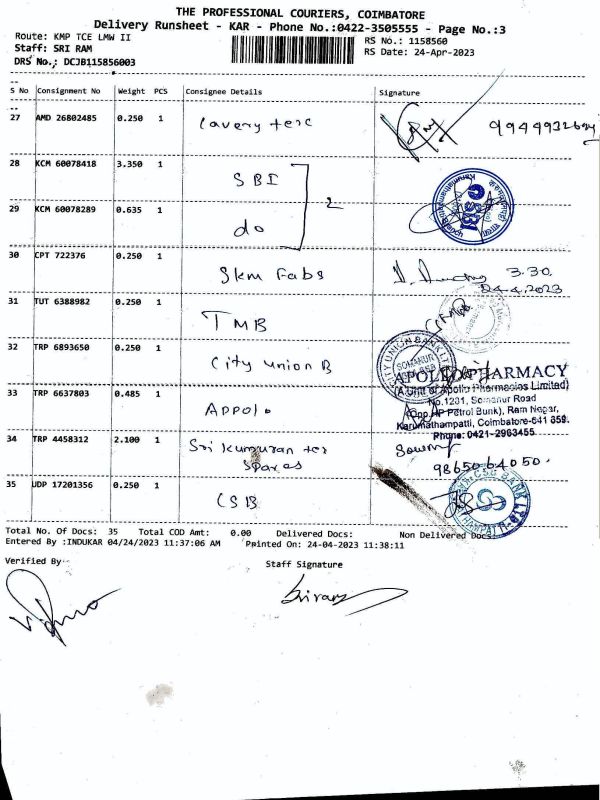 THE PROFESSIONAL COURIERS, COIMBATORE
Delivery Runsheet - KAR - Phone No.:0422-3505555 - Page No.:3
Route: KMP TCE LMW II
RS No.: 1158560
Staff: SRI RAM
RS Date: 24-Apr-2023
DRS No.: DCJB115856003
S No Consignment No Weight PCS Consignee Details Signature
27 AMD 26802485 0.250 1
28 KCM 60078418 3.350 1 SBI
2
29 KCM 60078289 0.635 1 do
SBI
30 CPT 722376 0.250 1 Skm Fabs 3.30.
24.4.2023
31 TUT 6388982 0.250 1 TMB
32 TRP 6893650 0.250 1 City union B
CITY UNION BANK LTD
SOMANUR
APOLLO PHARMACY
(A Unit of Apollo Pharmacies Limited)
33 TRP 6637803 0.485 1 Appolo
No.1281, Somanur Road
(Opp.AP Petrol Bunk), Ram Nagar,
Karumathampatti, Coimbatore-641 659.
Phone: 0421-2963455
34 TRP 4458312 2.100 1 Sri Kumuran tex
spares
98650 64050.
35 UDP 17201356 0.250 1 CSB
CSB BANK LTD
Total No. Of Docs: 35 Total COD Amt: 0.00 Delivered Docs: Non Delivered Docs:
Entered By :INDUKAR 04/24/2023 11:37:06 AM Printed On: 24-04-2023 11:38:11
Verified By
Staff Signature
Sriram